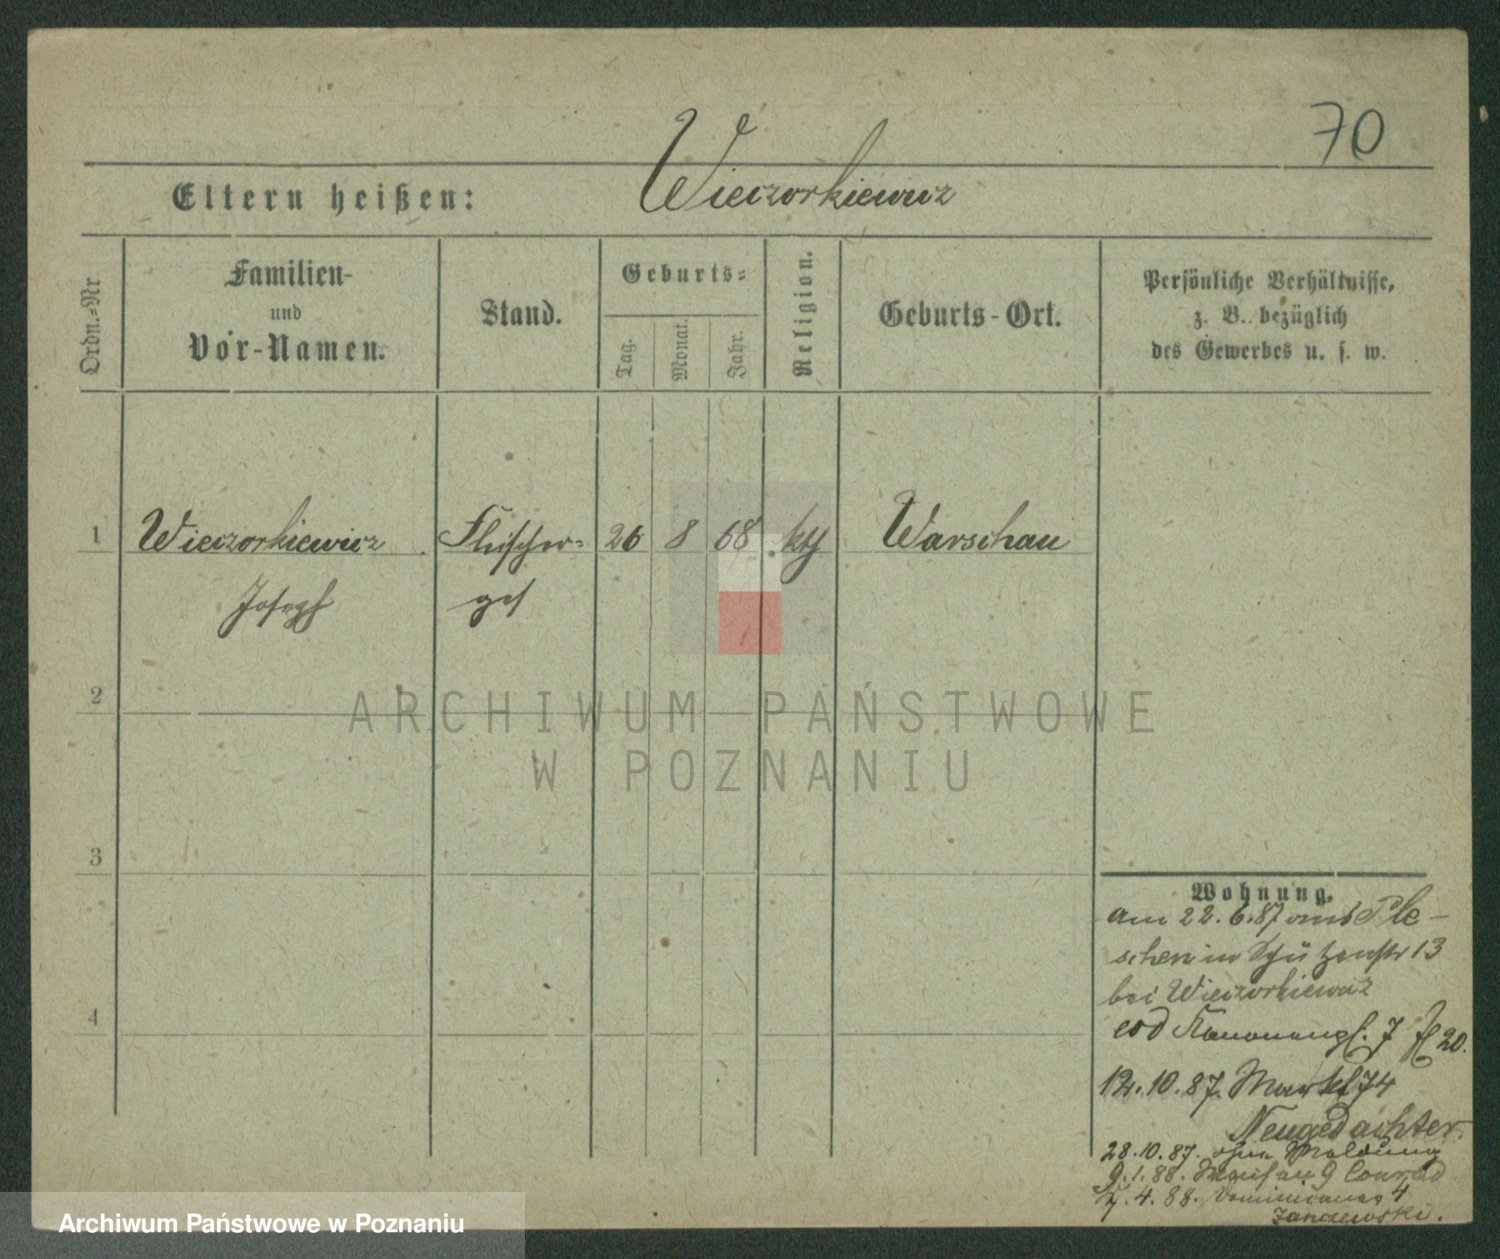 70
Wieczorkiewicz
Eltern heißen:
Ordn.=Nr
Familien-
und
Vor-Namen.
Stand.
Geburts=
Tag.
Monat.
Jahr.
Religion.
Geburts-Ort.
Persönliche Verhältnisse,
z. B. bezüglich
des Gewerbes u. s. w.
1 Wieczorkiewicz Fleischer= 26 8 68 Warschau
Joseph ges
2
3
4
ARCHIWUM PAŃSTWOWE
W POZNANIU
Wohnung.
am 22.6.87 aus Ple-
schen in Schützenstr 13
bei Wieczorkiewicz
eod 7 20.
12.10.87. Markt 74
Neugedachter.
28.10.87. ohne Meldung
9.1.88. 9 Conrad
4.88. Dominicaner 4
Archiwum Państwowe w Poznaniu